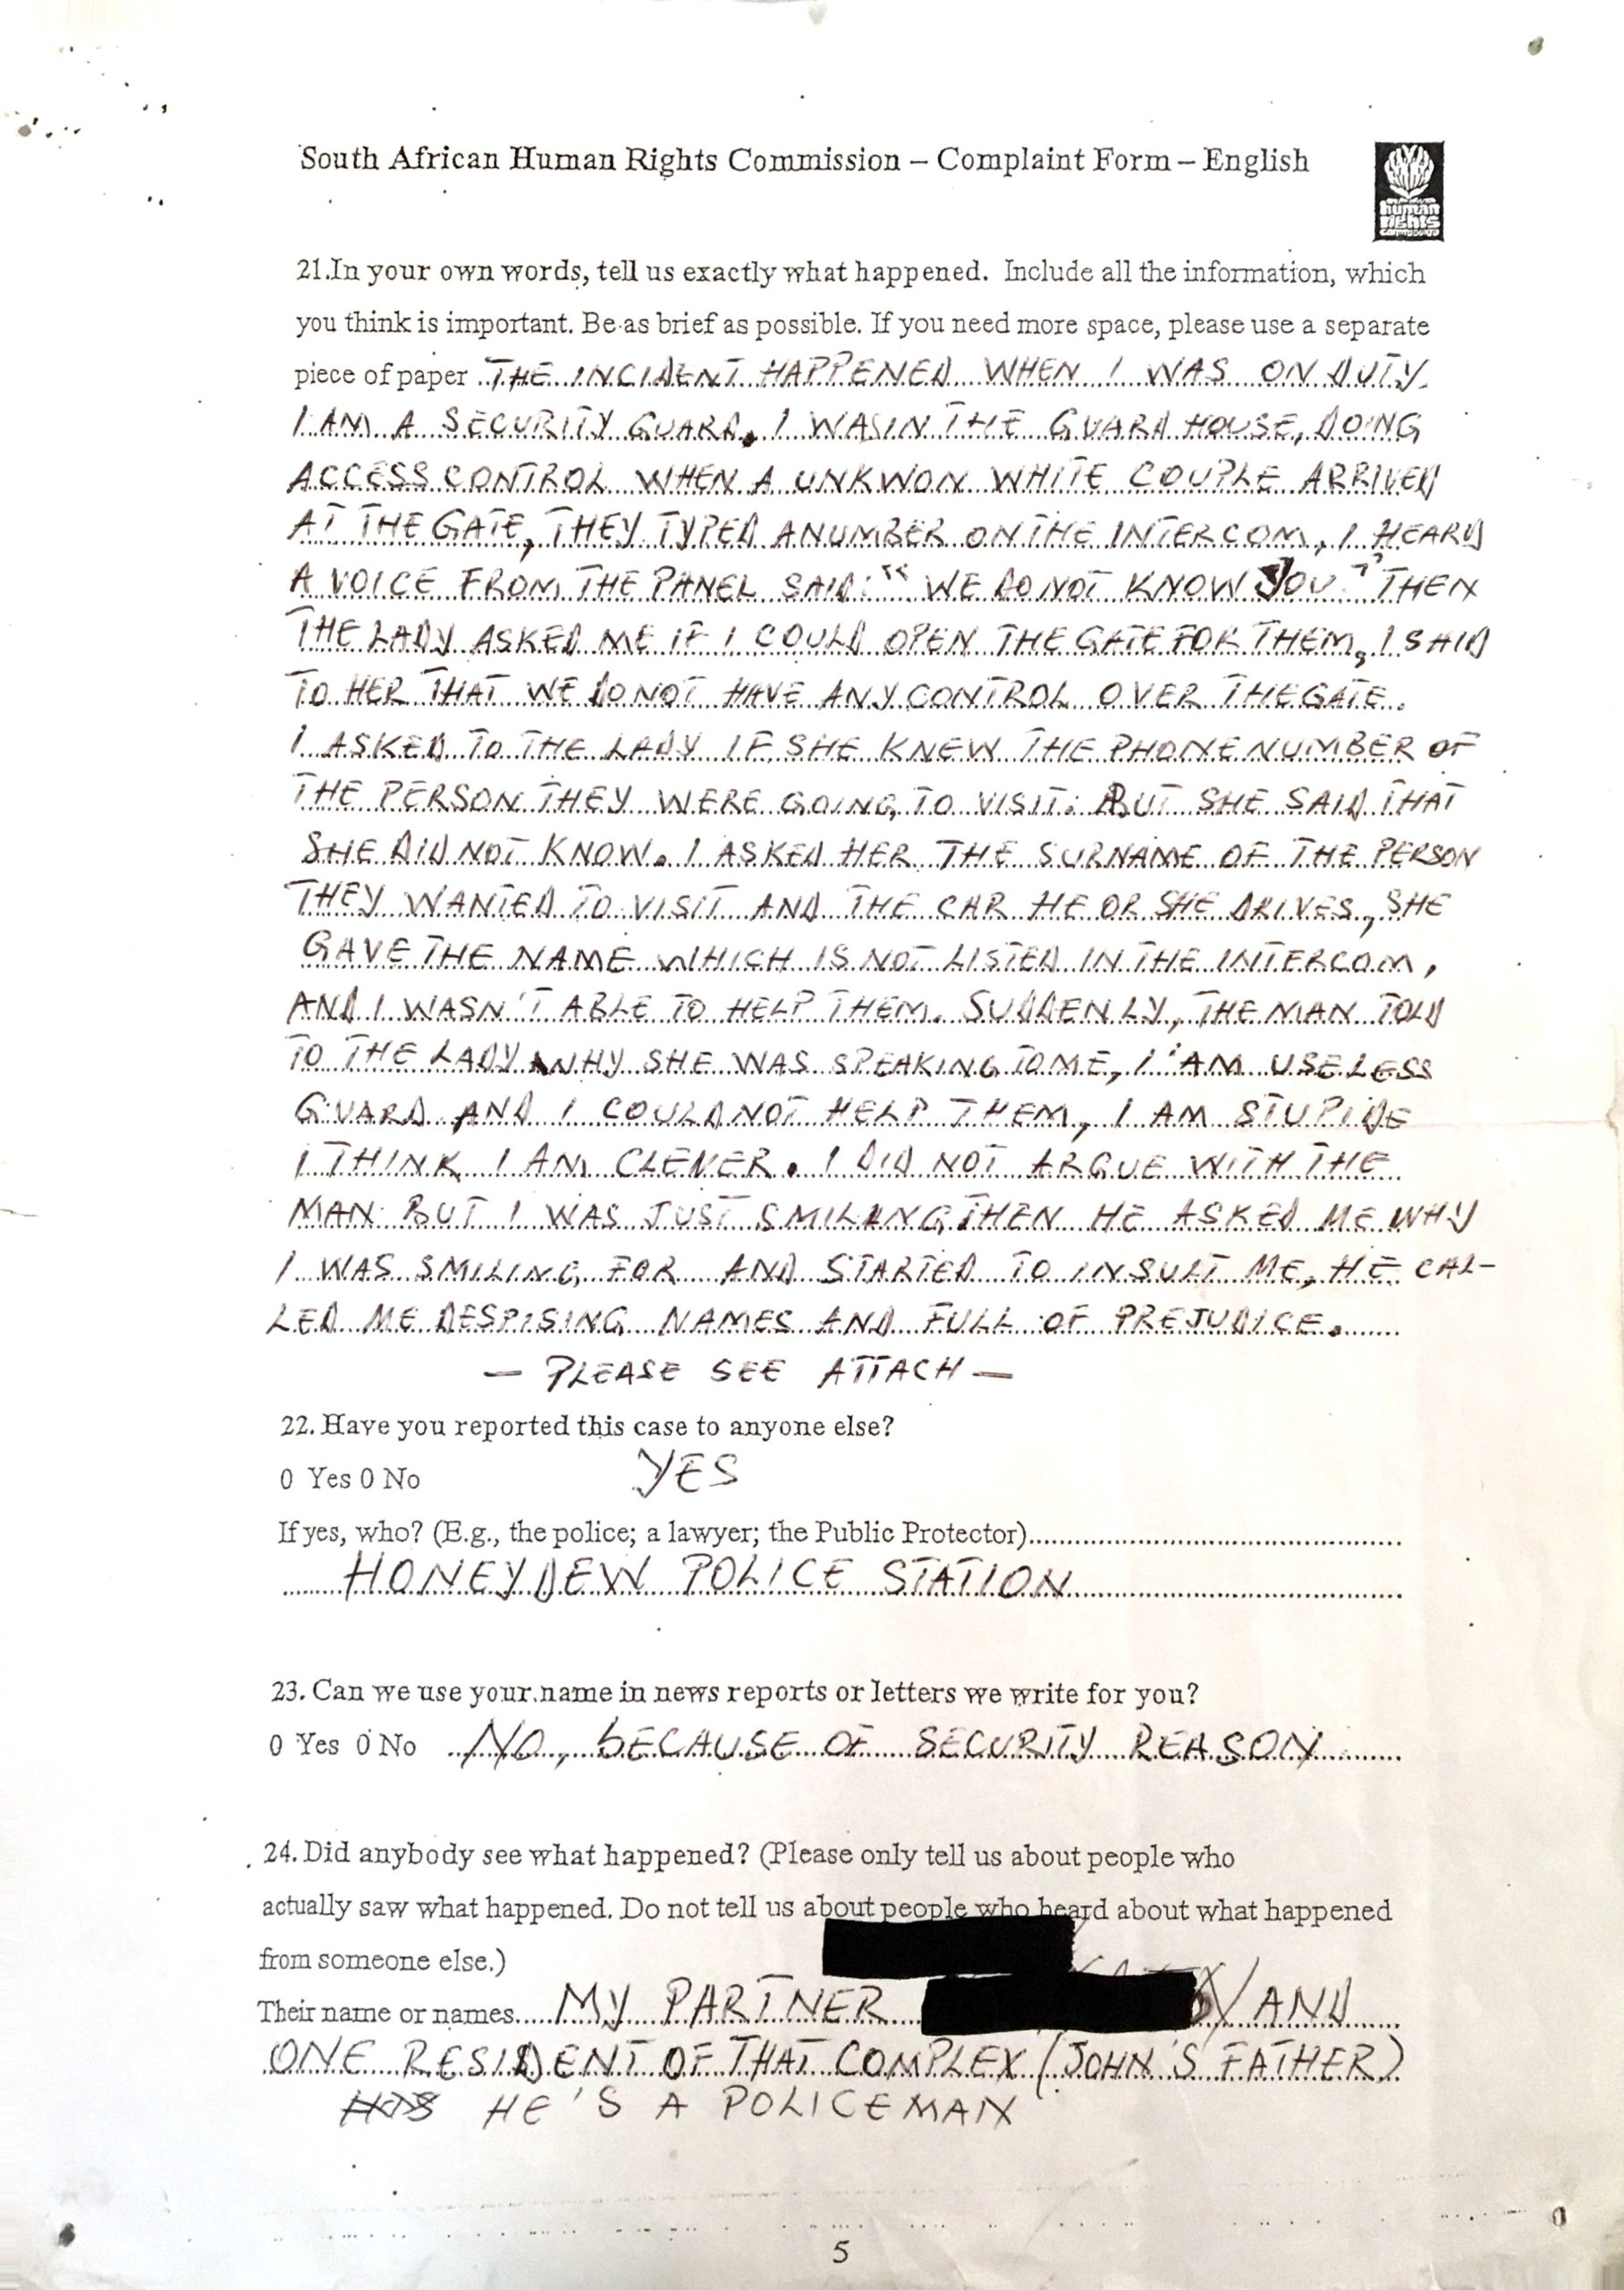 South African Human Rights Commission – Complaint Form – English
human
rights
21.In your own words, tell us exactly what happened. Include all the information, which
you think is important. Be as brief as possible. If you need more space, please use a separate
piece of paper THE INCIDENT HAPPENED WHEN I WAS ON DUTY.
I AM A SECURITY GUARD. I WASIN THE GUARD HOUSE, DOING
ACCESS CONTROL WHEN A UNKWON WHITE COUPLE ARRIVED
AT THE GATE, THEY TYPED A NUMBER ON THE INTERCOM, I HEARD
A VOICE FROM THE PANEL SAID: "WE DO NOT KNOW YOU" THEN
THE LADY ASKED ME IF I COULD OPEN THE GATE FOR THEM, I SAID
TO HER THAT WE DO NOT HAVE ANY CONTROL OVER THE GATE.
I ASKED TO THE LADY IF SHE KNEW THE PHONE NUMBER OF
THE PERSON THEY WERE GOING TO VISIT. BUT SHE SAID THAT
SHE DID NOT KNOW. I ASKED HER THE SURNAME OF THE PERSON
THEY WANTED TO VISIT AND THE CAR HE OR SHE DRIVES, SHE
GAVE THE NAME WHICH IS NOT LISTED IN THE INTERCOM,
AND I WASN'T ABLE TO HELP THEM. SUDDENLY, THE MAN TOLD
TO THE LADY WHY SHE WAS SPEAKING TO ME, I'AM USELESS
GUARD AND I COULD NOT HELP THEM, I AM STUPIDE
I THINK I AM CLEVER. I DID NOT ARGUE WITH THE
MAN BUT I WAS JUST SMILING, THEN HE ASKED ME WHY
I WAS SMILING FOR AND STARTED TO INSULT ME, HE CAL-
LED ME DESPISING NAMES AND FULL OF PREJUDICE.
— PLEASE SEE ATTACH —
22. Have you reported this case to anyone else?
0 Yes 0 No YES
If yes, who? (E.g., the police; a lawyer; the Public Protector)
HONEYDEW POLICE STATION
23. Can we use your name in news reports or letters we write for you?
0 Yes 0 No NO, bECAUSE OF SECURITY REASON
24. Did anybody see what happened? (Please only tell us about people who
actually saw what happened. Do not tell us about people who heard about what happened
from someone else.)
Their name or names MY PARTNER AND
ONE RESIDENT OF THAT COMPLEX (JOHN'S FATHER)
HE'S A POLICEMAN
5